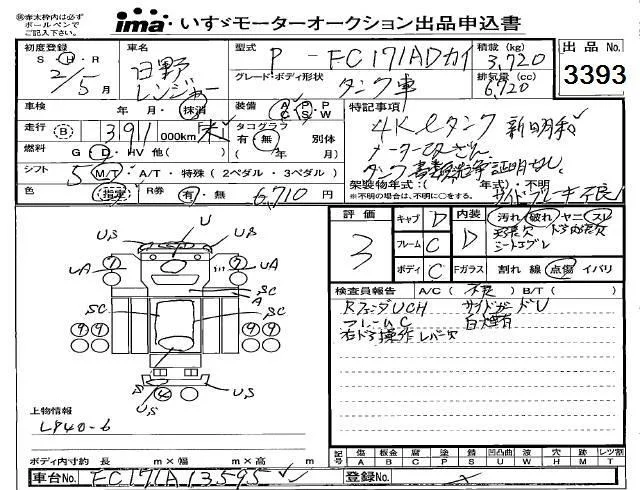 赤太枠内は必ず
ボールペンで
ご記入下さい。
ima いすゞモーターオークション出品申込書
初度登録
S H R
2/5月
車名
日野
レンジャー
型式
P-FC171ADカイ
グレード・ボディ形状
タンク車
積載(kg)
3,720
排気量(cc)
6,720
出品No.
3393
車検 年・月・抹消
装備 A/C P/S P/W
走行 (B) 391 000km
タコグラフ
有・無 別体
( 年/ 月)
燃料 G・D・HV 他( )
シフト 5 M/T・A/T・特殊(2ペダル・3ペダル)
色 指定 R券 有・無 6,710 円
特記事項
4Kℓタンク 新明和
タンク書類 証明なし
架装物年式:( 年式)・不明
※不明の場合は、不明に○をする。
サイドブレーキ不良
U
UB UB
UA UA
SC
A
SC SC
S
US US
4
上物情報
L940-6
ボディ内寸約 長 m×幅 m×高 m
評価
3
キャブ D
フレーム C
ボディ C
内装 D
汚れ 破れ ヤニ スレ
Fガラス 割れ 線 点傷 イパリ
検査員報告 A/C( 不良 ) B/T( )
RフェンダUCH サイドガードU
フレームC 白煙有
右ドア操作レバー欠
記号 傷 A 板金 B 腐 C 塗 P 錆 S 凹凸曲 U 波 W 穴 H 跡 M レツ割 T
車台No. FC171A13595
登録No.